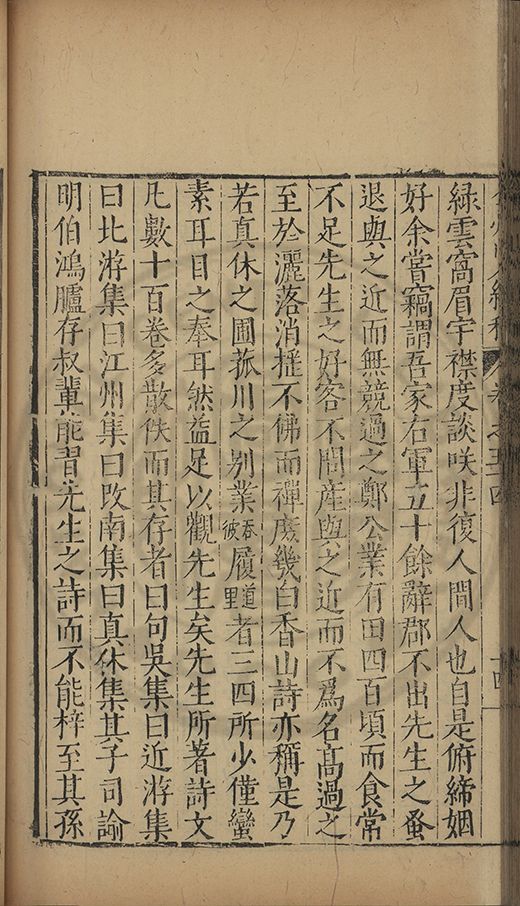 州山人續稿 卷之五十四 十四
綠雲窩眉宇襟度談咲非復人間人也自是俯締姻
好余嘗竊謂吾家右軍五十餘辭郡不出先生之蚤
退與之近而無競過之鄭公業有田四百頃而食常
不足先生之好客不問產與之近而不爲名髙過之
至於灑落消揺不佛而禪庶幾白香山詩亦稱是乃
若真休之圃菰川之别業吞彼履道里者三四所少僅蠻
素耳目之奉耳然益足以觀先生矣先生所著詩文
凡數十百卷多散佚而其存者曰句吳集曰近游集
曰北游集曰江州集曰改南集曰真休集其子司諭
明伯鴻臚存叔輩能習先生之詩而不能梓至其孫